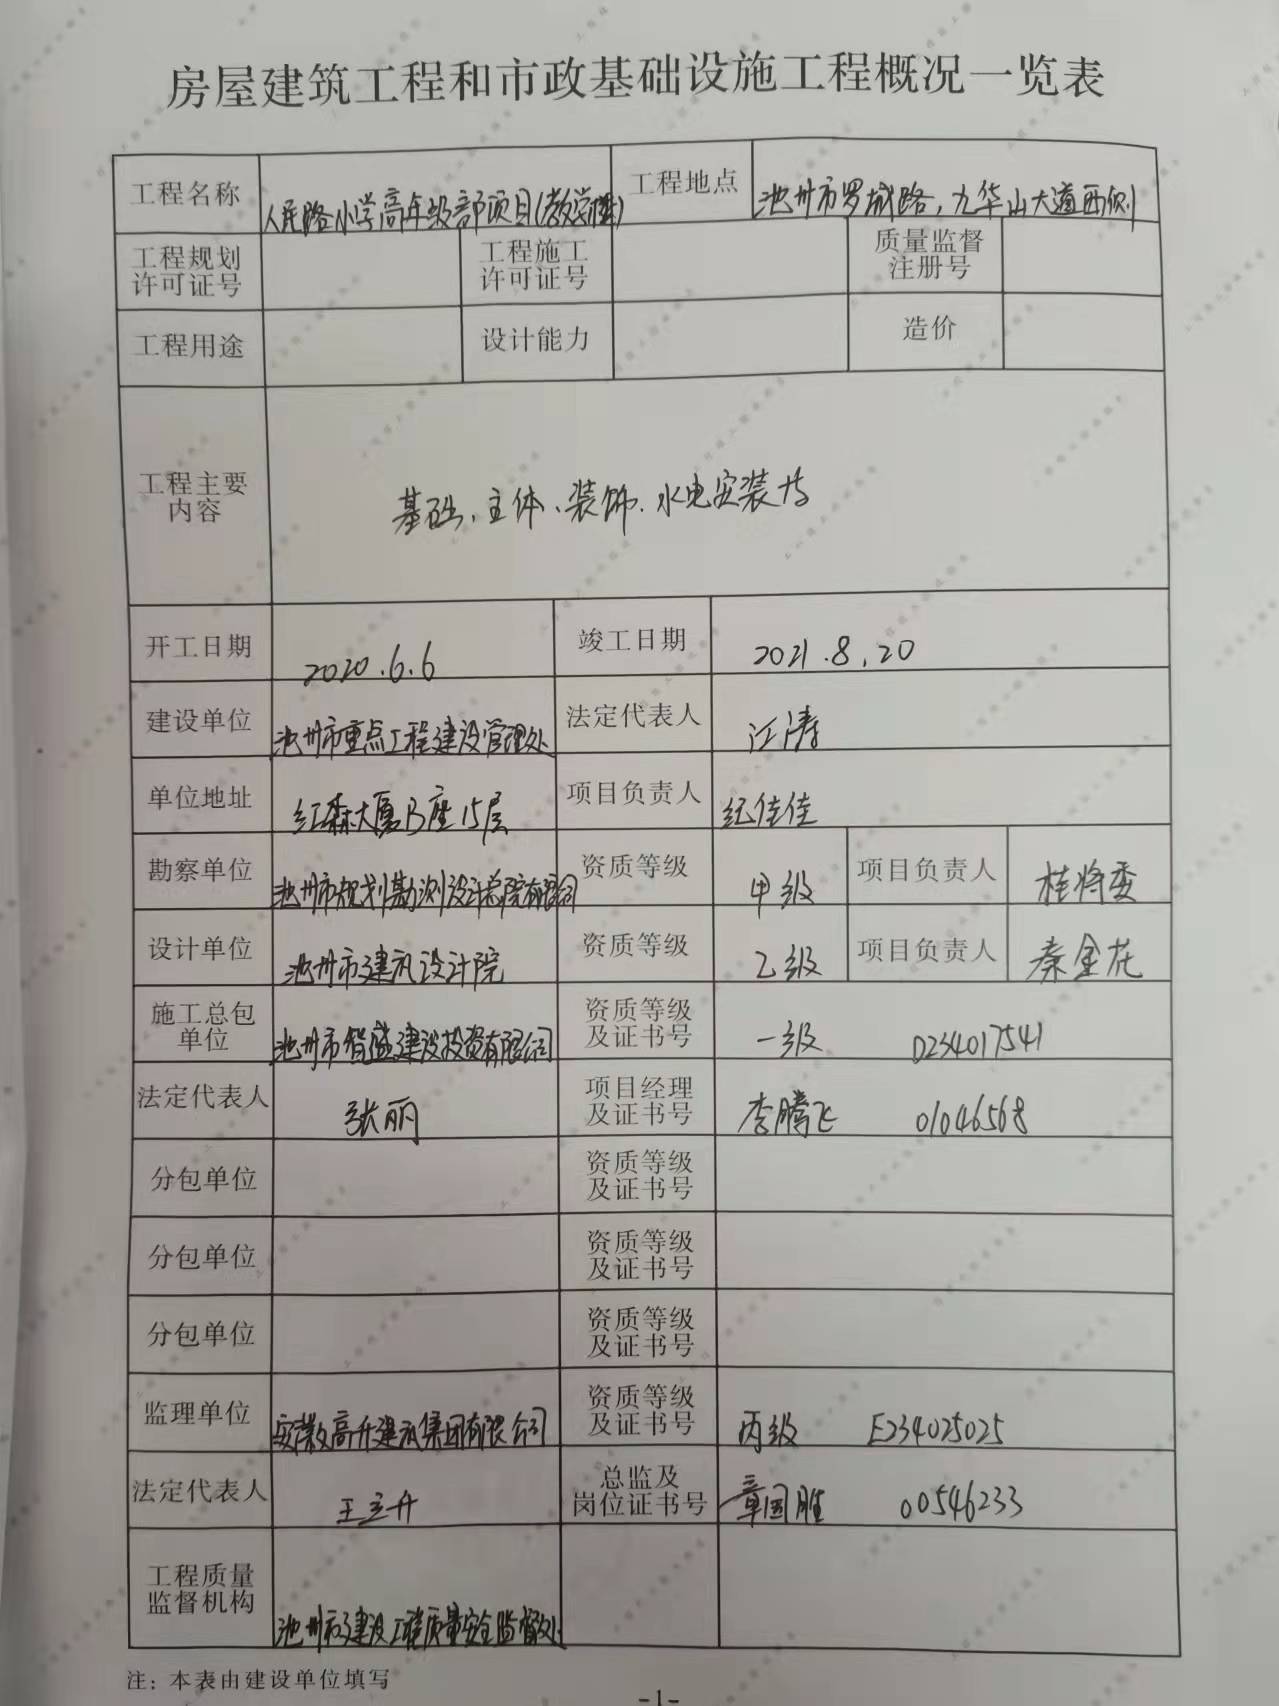 房屋建筑工程和市政基础设施工程概况一览表
工程名称 人民路小学高年级部项目(教学楼) 工程地点 池州市罗城路，九华山大道西侧
工程规划许可证号 工程施工许可证号 质量监督注册号
工程用途 设计能力 造价
工程主要内容 基础、主体、装饰、水电安装等
开工日期 2020.6.6 竣工日期 2021.8.20
建设单位 池州市重点工程建设管理处 法定代表人 江涛
单位地址 红森大厦B座15层 项目负责人 纪佳佳
勘察单位 池州市规划勘测设计总院有限公司 资质等级 甲级 项目负责人 桂将委
设计单位 池州市建筑设计院 资质等级 乙级 项目负责人 秦金花
施工总包单位 池州市智盛建设投资有限公司 资质等级及证书号 一级 D234017541
法定代表人 张丽 项目经理及证书号 李腾飞 01046568
分包单位 资质等级及证书号
分包单位 资质等级及证书号
分包单位 资质等级及证书号
监理单位 安徽高升建筑集团有限公司 资质等级及证书号 丙级 E234025025
法定代表人 王立升 总监及岗位证书号 章国胜 00546233
工程质量监督机构 池州市建设工程质量安全监督处
注：本表由建设单位填写
-1-